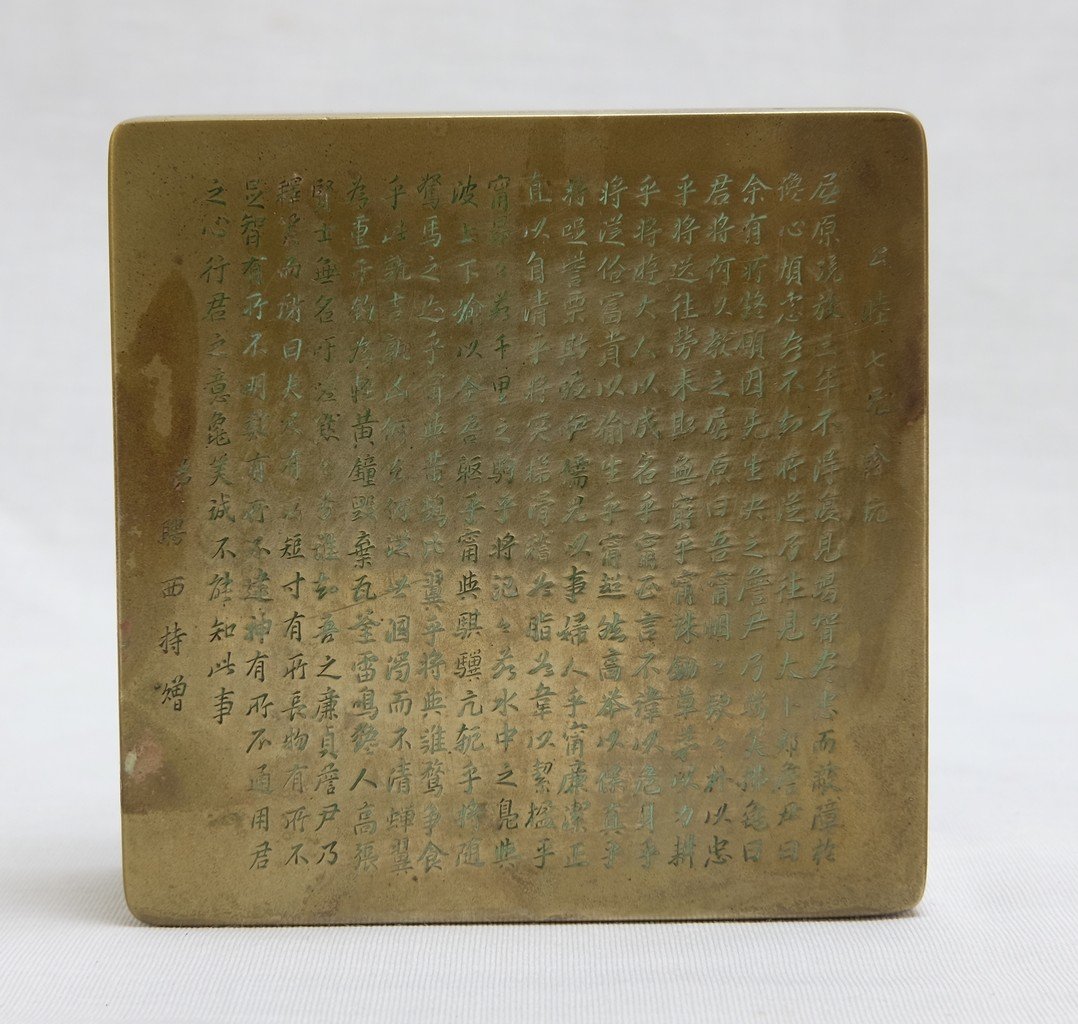 公睦七兄
屈原既放三年不得復見竭智尽忠而蔽障於
讒心煩慮乱不知所從乃往見大卜鄭詹尹曰
余有所疑願因先生決之詹尹乃端策拂龜曰
君將何以教之屈原曰吾甯悃〻款〻朴以忠
乎將送往勞来斯無窮乎甯誅鋤草茅以力耕
乎將遊大人以成名乎甯正言不諱以危身乎
將從俗富貴以偷生乎甯超然高舉以保真乎
將哫訾栗斯喔伊嚅兒以事婦人乎甯廉潔正
直以自清乎將突梯滑稽如脂如韋以絜楹乎
甯昂〻若千里之駒乎將氾〻若水中之鳧與
波上下偷以全吾軀乎甯與騏驥亢軛乎將隨
駑馬之迹乎甯與黃鵠比翼乎將與雞鶩爭食
乎此孰吉孰凶何去何從世溷濁而不清蟬翼
為重千鈞為輕黃鐘毀棄瓦釜雷鳴讒人高張
賢士無名吁嗟默〻兮誰知吾之廉貞詹尹乃
釋策而謝曰夫尺有所短寸有所長物有所不
足智有所不明數有所不逮神有所不通用君
之心行君之意龜筴誠不能知此事
弟騁西持贈